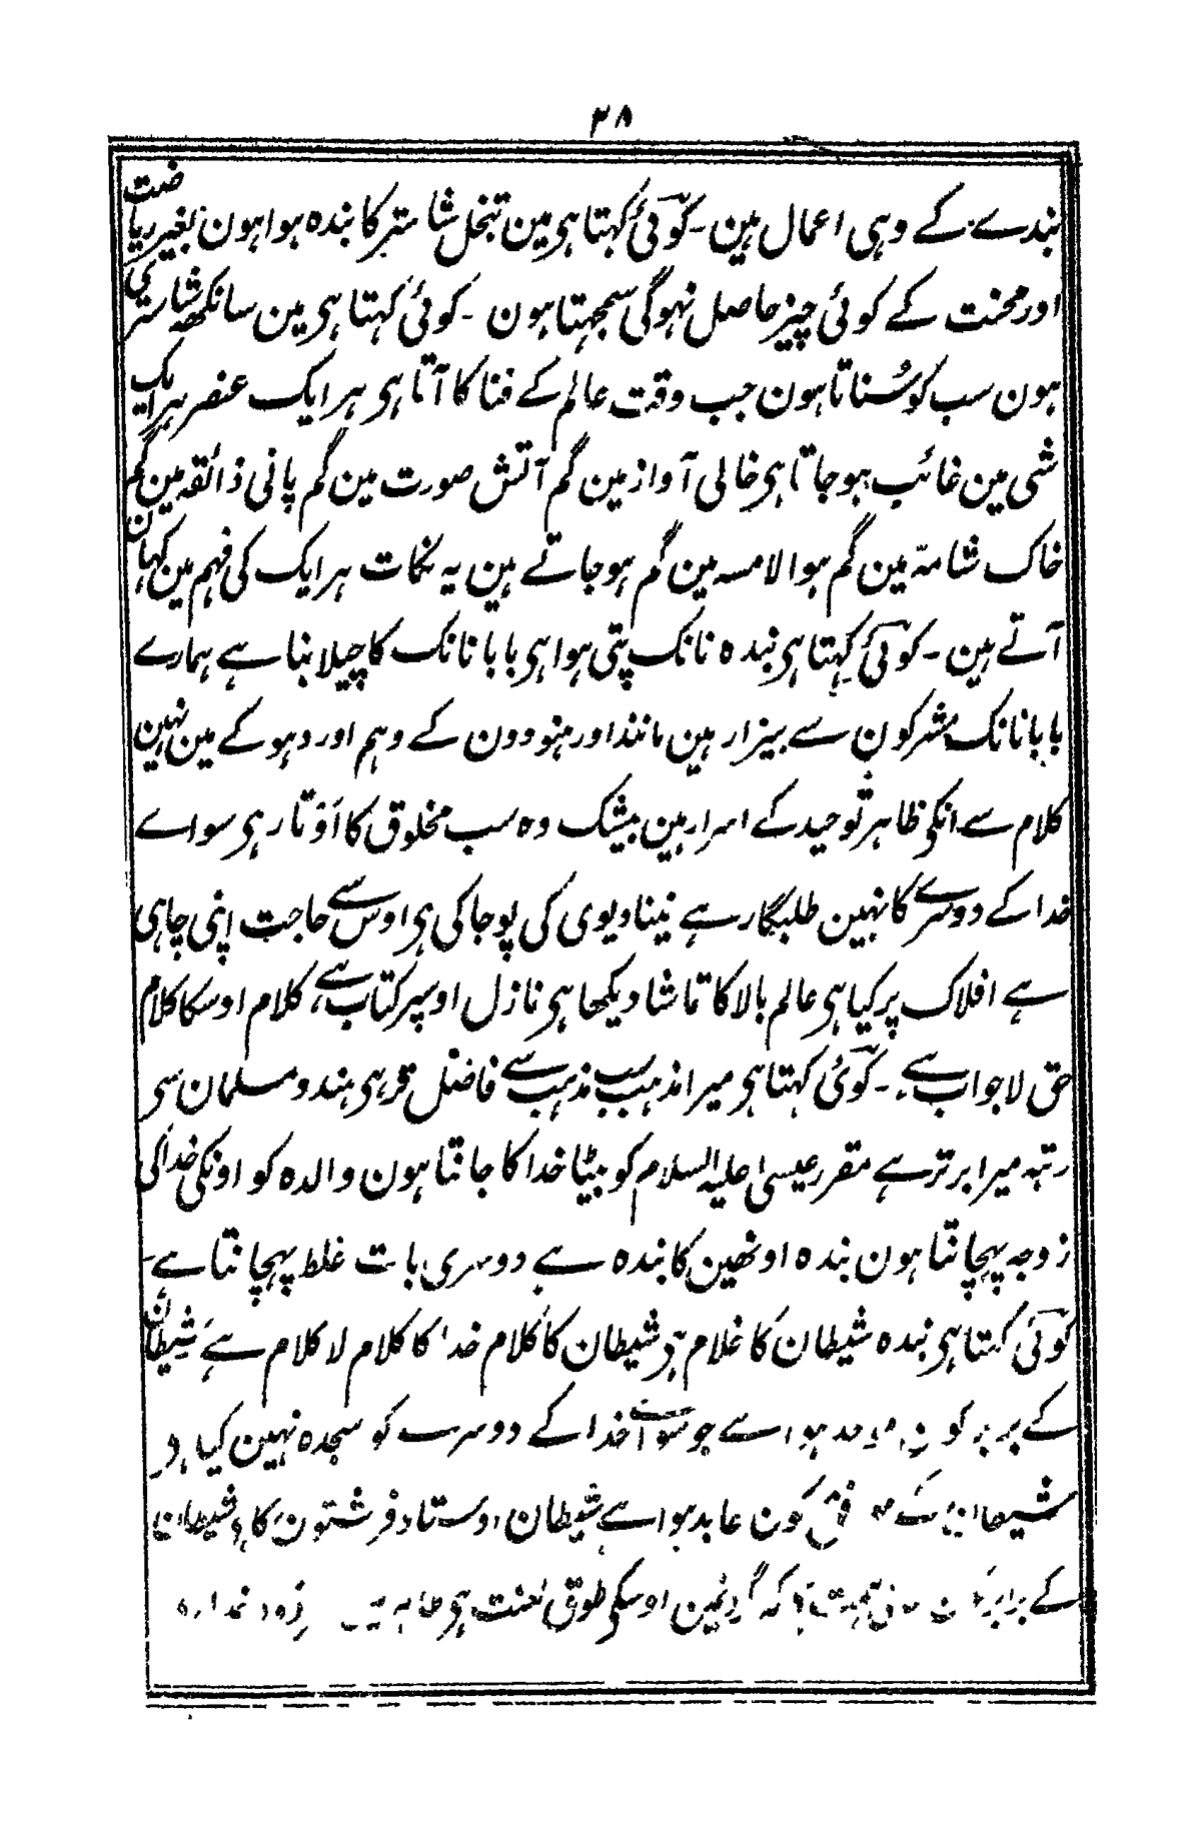 ۳۸
بندے کے وہی اعمال ہین ۔ کوئی کہتا ہی مین تنجل شاستر کا بندہ ہوا ہون بغیر ریاضت
اور محنت کے کوئی چیز حاصل نہوگی سمجہتا ہون ۔ کوئی کہتا ہی مین سانکھہ شاستر کی
ہون سب کو سُناتا ہون جب وقت عالم کے فنا کا آتا ہی ہر ایک عنصر ہر ایک
شی مین غائب ہو جاتا ہی خالی آواز مین گم آتش صورت مین گم پانی ذائقہ مین گم
خاک شامّہ مین گم ہوا لامسہ مین گم ہو جاتے ہین یہ نکات ہر ایک کی فہم مین کہان
آتے ہین ۔ کوئی کہتا ہی بندہ نانک پتی ہوا ہی بابا نانک کا چیلا بنا ہے ہمارے
بابا نانک مشرکون سے بیزار ہین مانند اور ہنودون کے وہم اور دہوکے مین نہین
کلام سے انکی ظاہر توحید کے اسرار ہین بیشک وہ سب مخلوق کا اَوْتار ہی سواے
خدا کے دوسرے کا نہین طلبگار ہے نینا دیوی کی پوجا کی ہی اوس سے حاجت اپنی چاہی
ہے افلاک پر کیا ہی عالم بالا کا تماشا دیکھا ہی نازل اوسپر کتاب ہے، کلام اوسکا کلام
حق لاجواب ہے ۔ کوئی کہتا ہی میرا مذہب سب مذہب سے فاضل تر ہی ہندو مسلمان سی
رتبہ میرا برتر ہے مقرر عیسیٰ علیہ السلام کو بیٹا خدا کا جانتا ہون والدہ کو اونکی خدا کی
زوجہ پہچانتا ہون بندہ اونھین کا بندہ ہے دوسری بات غلط پہچانتا ہے ۔
کوئی کہتا ہی بندہ شیطان کا غلام ہی شیطان کا کلام خدا کا کلام لا کلام ہے شیطان
کے برابر کون موحد ہوا ہے جو سواے خدا کے دوسرے کو سجدہ نہین کیا ہی
شیطان کے کون عابد ہوا ہے شیطان اوستاد فرشتون کا ہی شیطان
کے برابر کہ گردنمین اوسکی طوق لعنت ہی